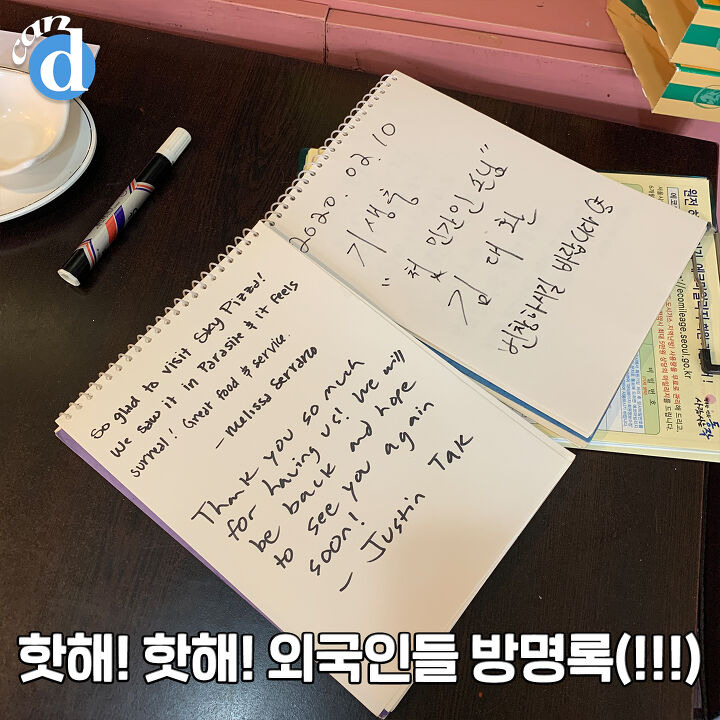 can
d
2020. 02. 10
기생충
"첫 민간인 손님"
김대환
So glad to visit Sky Pizza!
We saw it in Parasite & it feels
surreal! Great food & service.
- Melissa Serrano
Thank you so much
for having us! We will
be back and hope
to see you again
soon!
- Justin Tak
ecomileage.seoul.go.kr
비밀번호
핫해! 핫해! 외국인들 방명록(!!!)